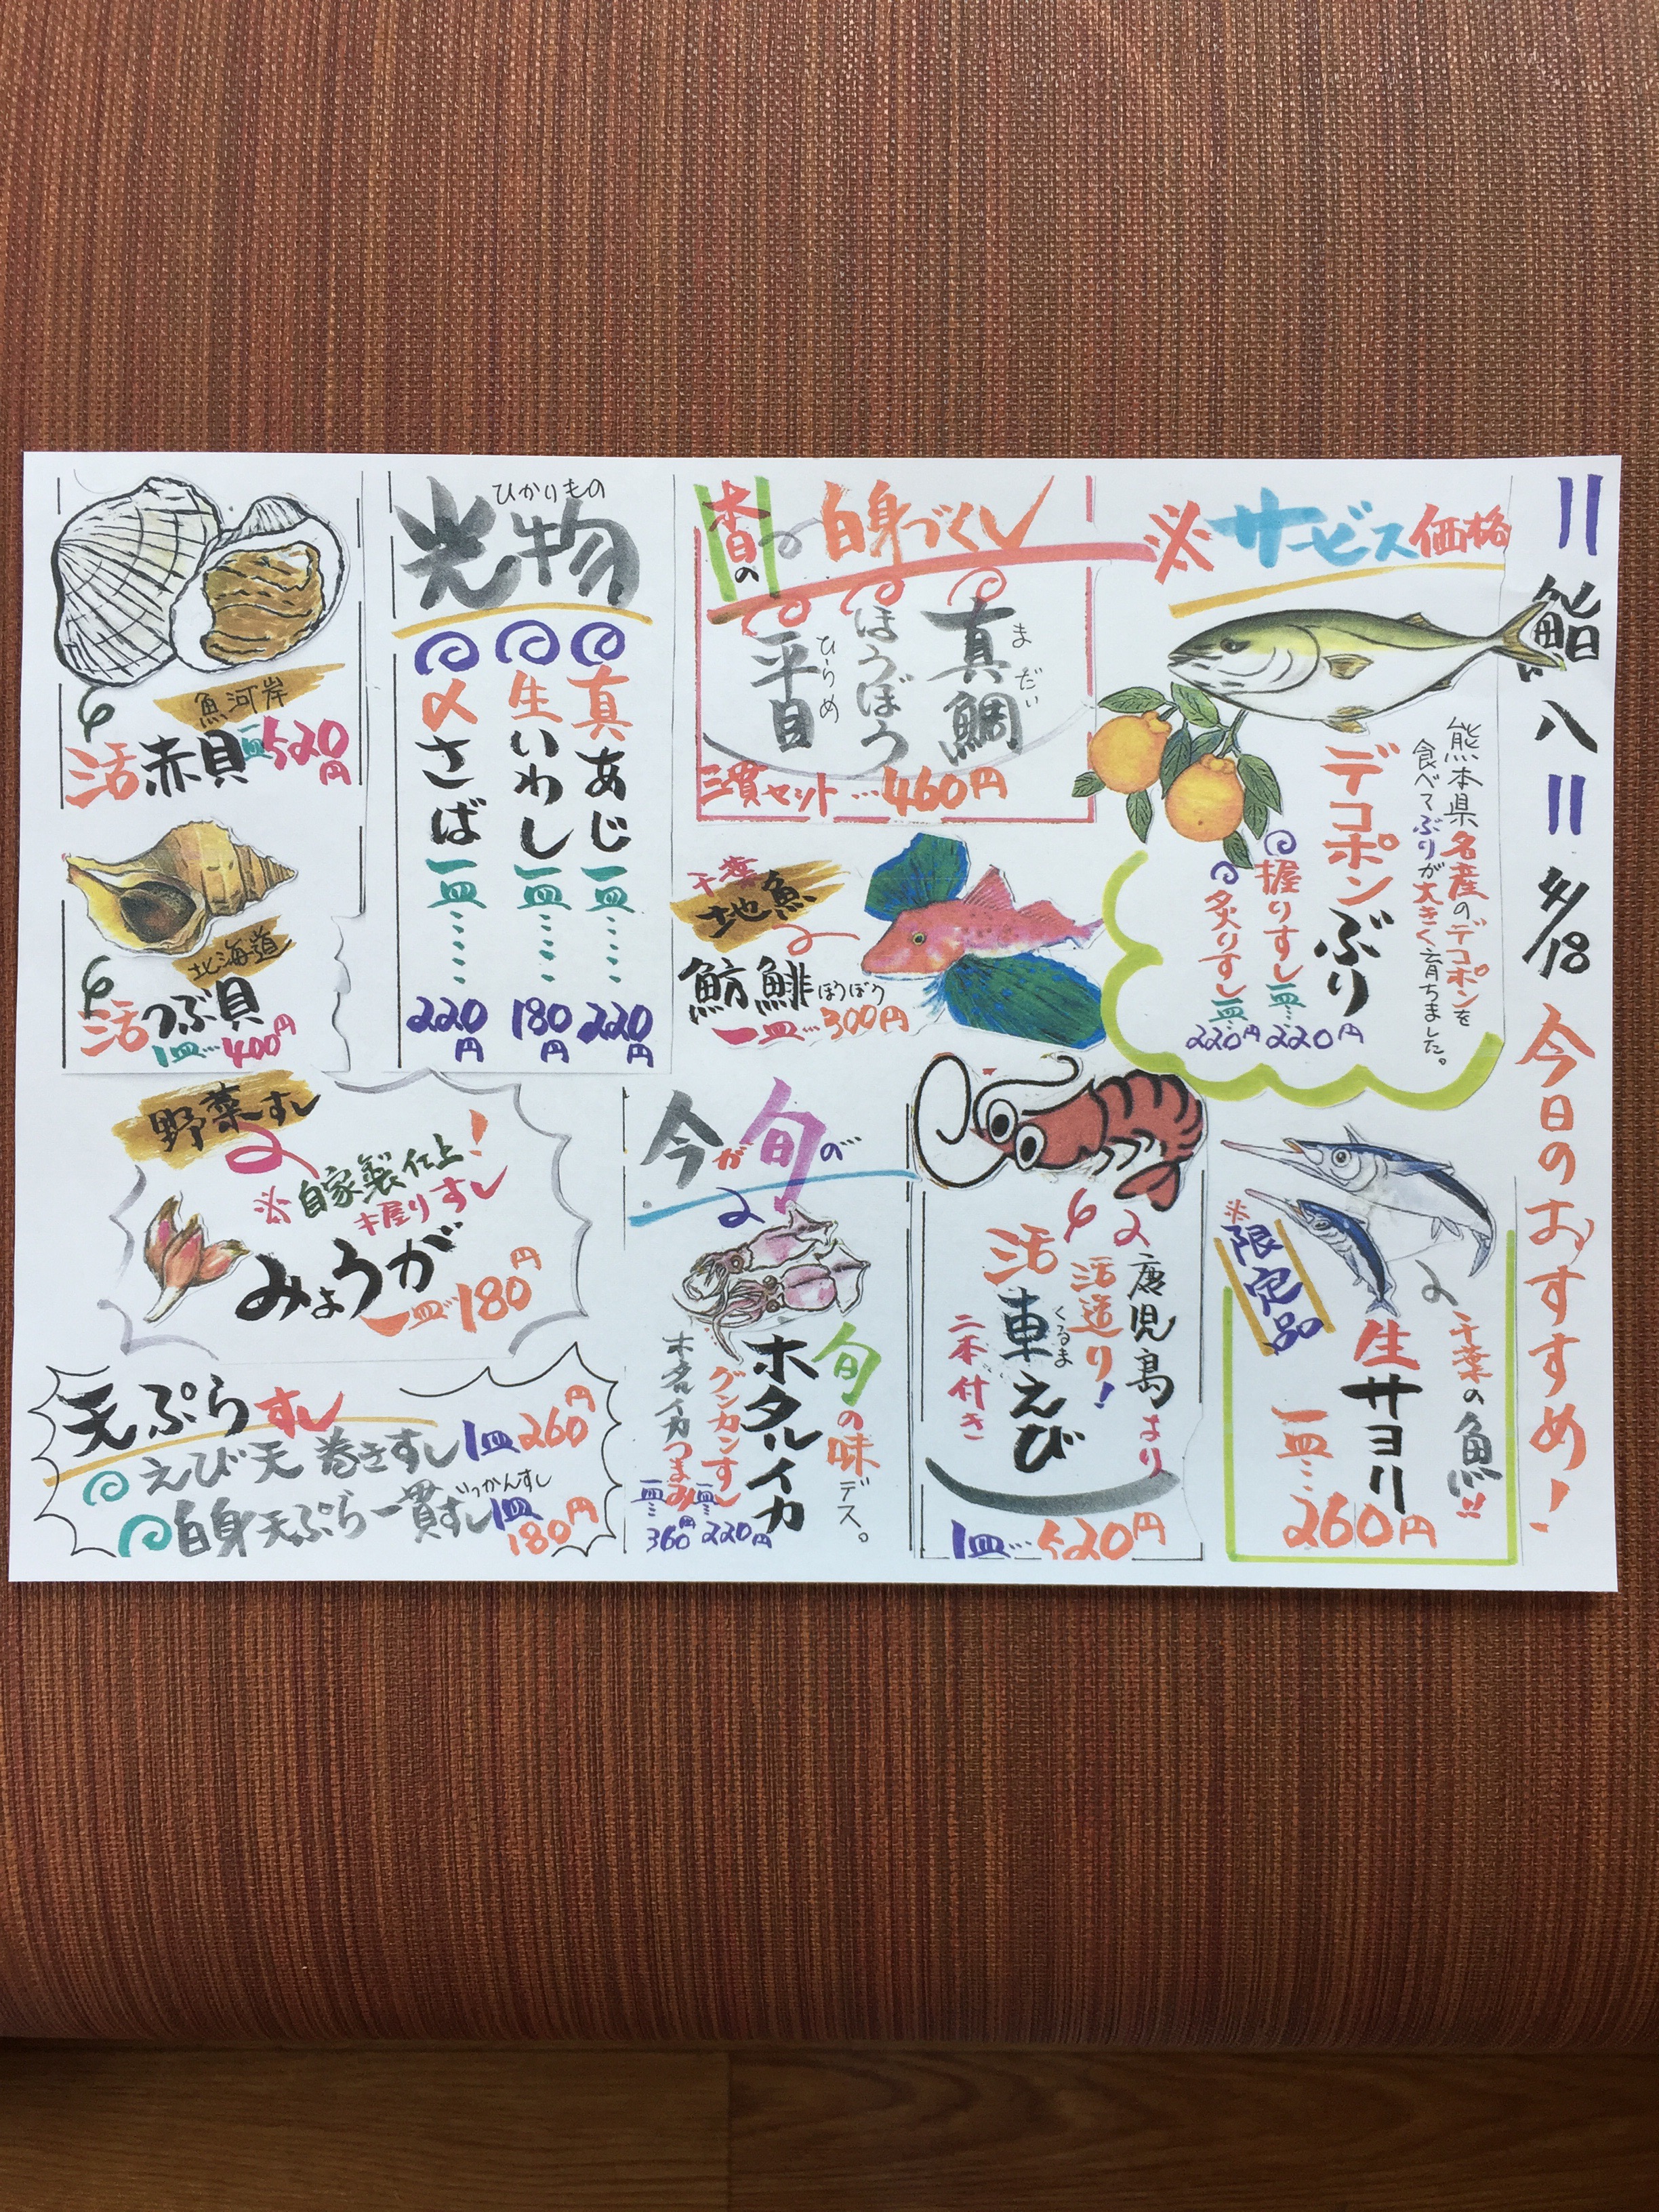 鮨八
4/18
今日のおすすめ!
※サービス価格
熊本県名産のデコポンを
食べてぶりが大きく育ちました。
デコポンぶり
握りすし一皿…220円
炙りすし一皿…220円
本日の白身づくし
真鯛
まだい
ほうぼう
平目
ひらめ
三貫セット…460円
千葉
地魚
魴鮄
ほうぼう
一皿…300円
ひかりもの
光物
真あじ一皿……220円
生いわし一皿……180円
〆さば一皿……220円
魚河岸
活赤貝一皿520円
北海道
活つぶ貝
1皿…400円
千葉の魚!!
※限定品
生サヨリ
一皿…260円
鹿児島より
活造り!
活車えび
くるま
二本付き
1皿…520円
今が旬の
旬の味デス。
ホタルイカ
グンカンすし一皿…220円
ホタルイカつまみ一皿…360円
野菜すし
※自家製仕上!
握りすし
みょうが
一皿…180円
天ぷらすし
えび天巻きすし1皿260円
白身天ぷら一貫すし1皿180円
いっかんすし